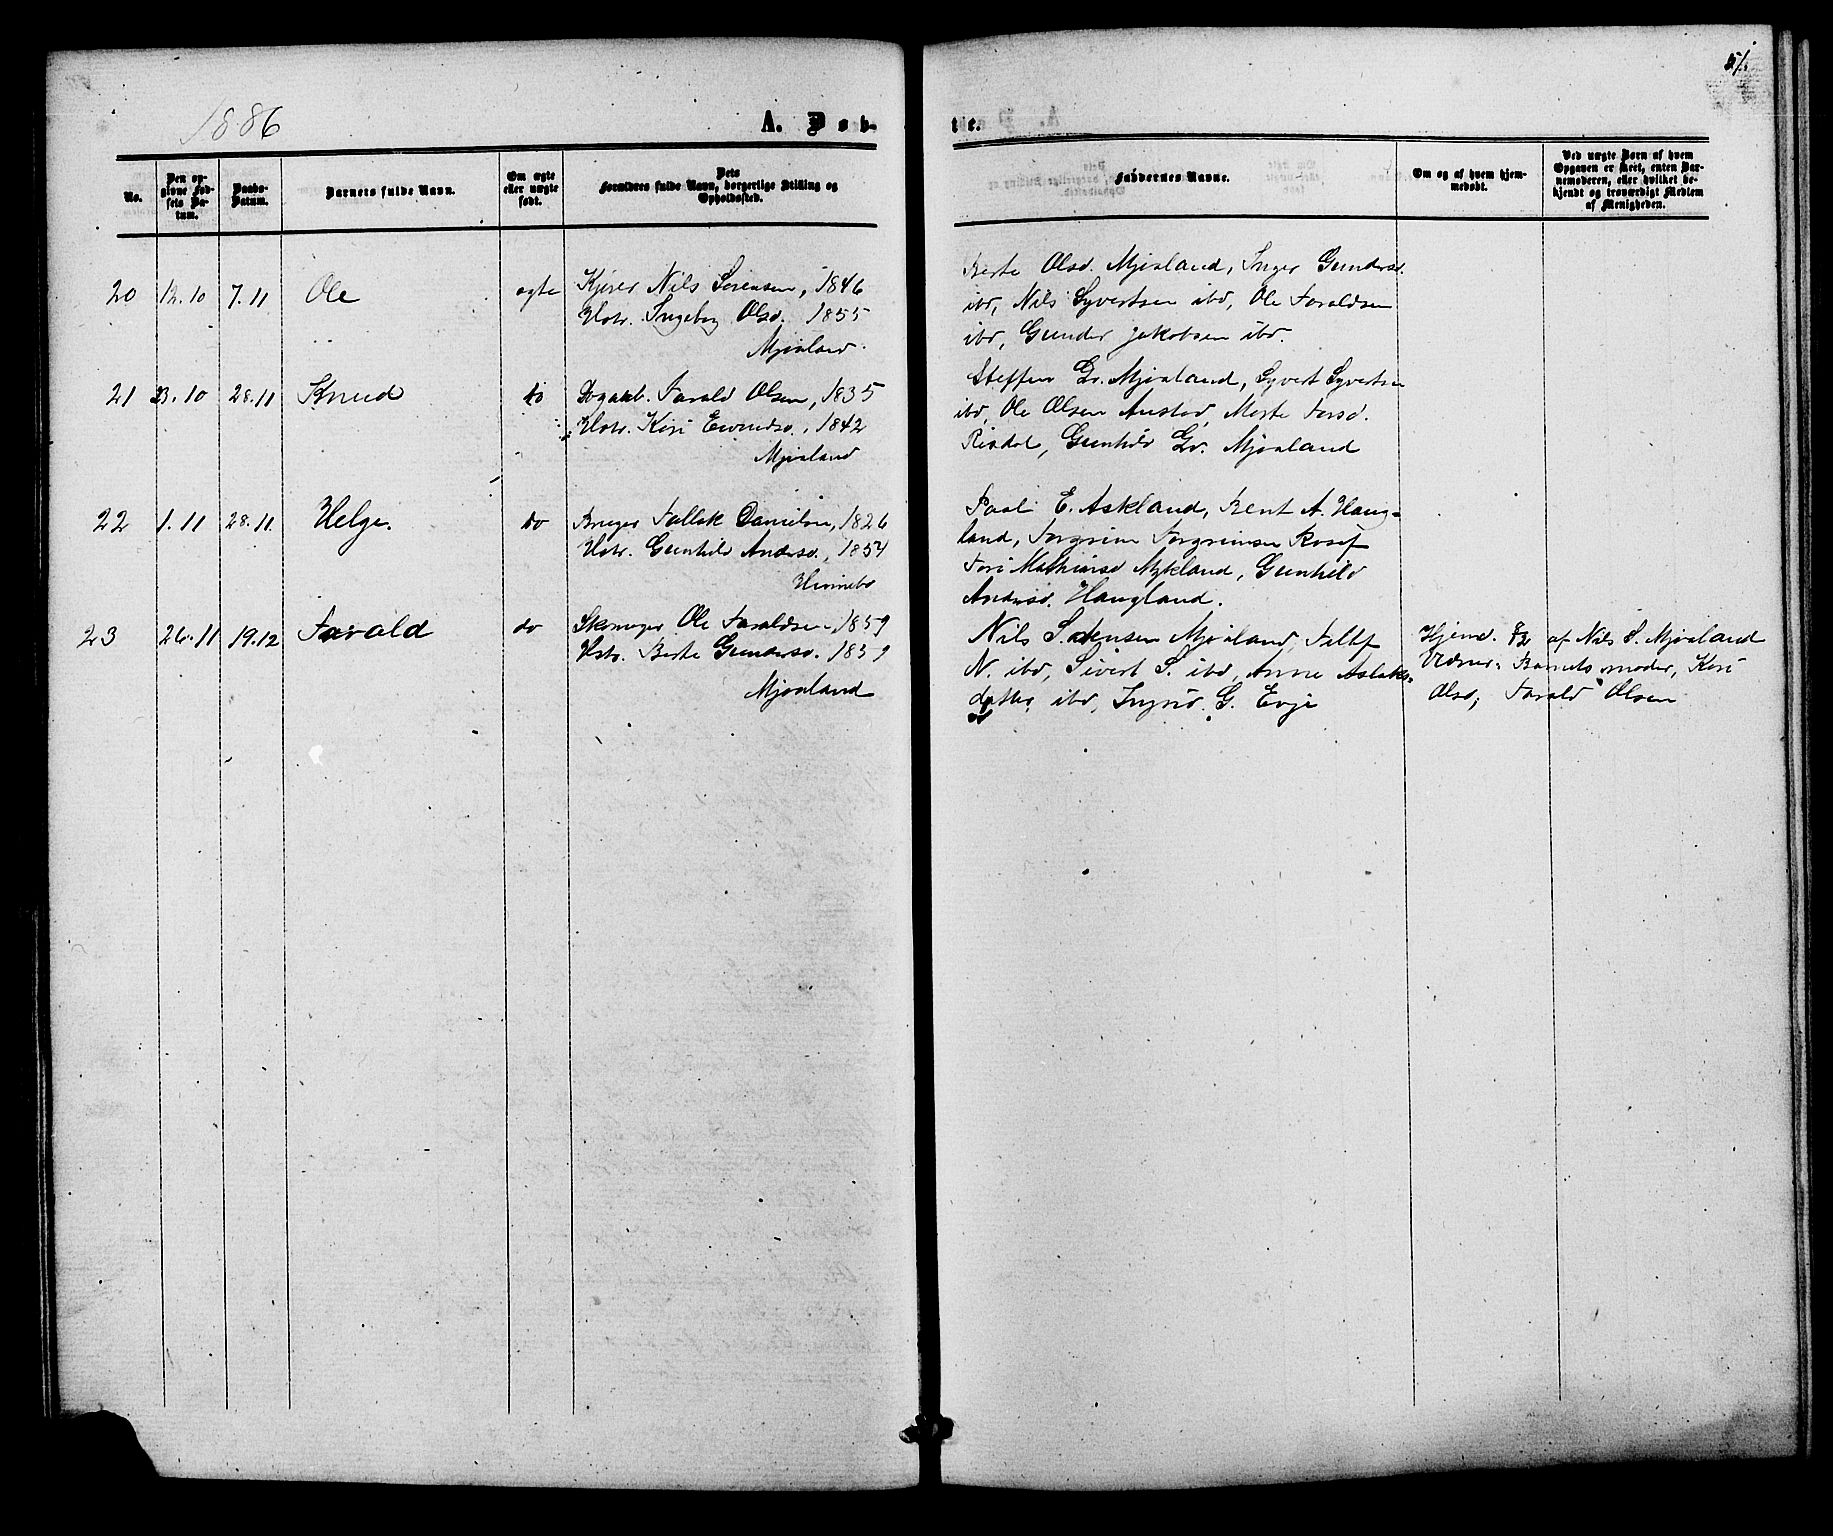 1886
A. Døb-
te.
No.
Den opgivne Fødsels Datum.
Daabs-Datum.
Barnets fulde Navn.
Om ægte eller uægte født.
Dets Forældres fulde Navn, borgerlige Stilling og Opholdssted.
Faddernes Navne.
Om og af hvem hjemmedøbt.
Ved uægte Børn af hvem Opgaven er skeet, enten Barnemoderen, eller hvilket bekjendt og troværdigt Medlem af Menigheden.
20 12.10 7.11 Ole ægte Nils Sørensen, 1846
Hstr. Ingebog Olsd. 1855
Mjoaland.
Berte Olsd. Mjoaland, Inger Gundersd.
ibd, Nils Syvertsen ibd, Ole Taraldsen
ibd, Gunder Jakobsen ibd.
21 23.10 28.11 Knud do Tarald Olsen, 1835
Hstr. Kari Eivindsd., 1842
Mjoaland
Steffen Mjoaland, Syvert Syvertsen
ibd, Ole Olsen Austad, Marte
Risdal, Gunhild Mjoaland
22 1.11 28.11 Helge. do Bruger Tallak Danielsen, 1826
Hstr. Gunhild Andersd., 1854
Himnebo
Paal E. Askland, Bent A. Haug-
land, Torgrim Torgrimsen
Tori Mykland, Gunhild
Andersd. Haugland.
23 26.11 19.12 Tarald do Ole Taraldsen, 1859
Hstr. Berte Gundersd. 1859
Mjoaland
Nils Sørensen Mjoaland,
N. ibd, Sivert S. ibd, Anne Aslaks-
datter ibd, G. Evje
Hjemd. af Nils S. Mjoaland
Vidner: Barnets moder, Kari
Olsd, Tarald Olsen